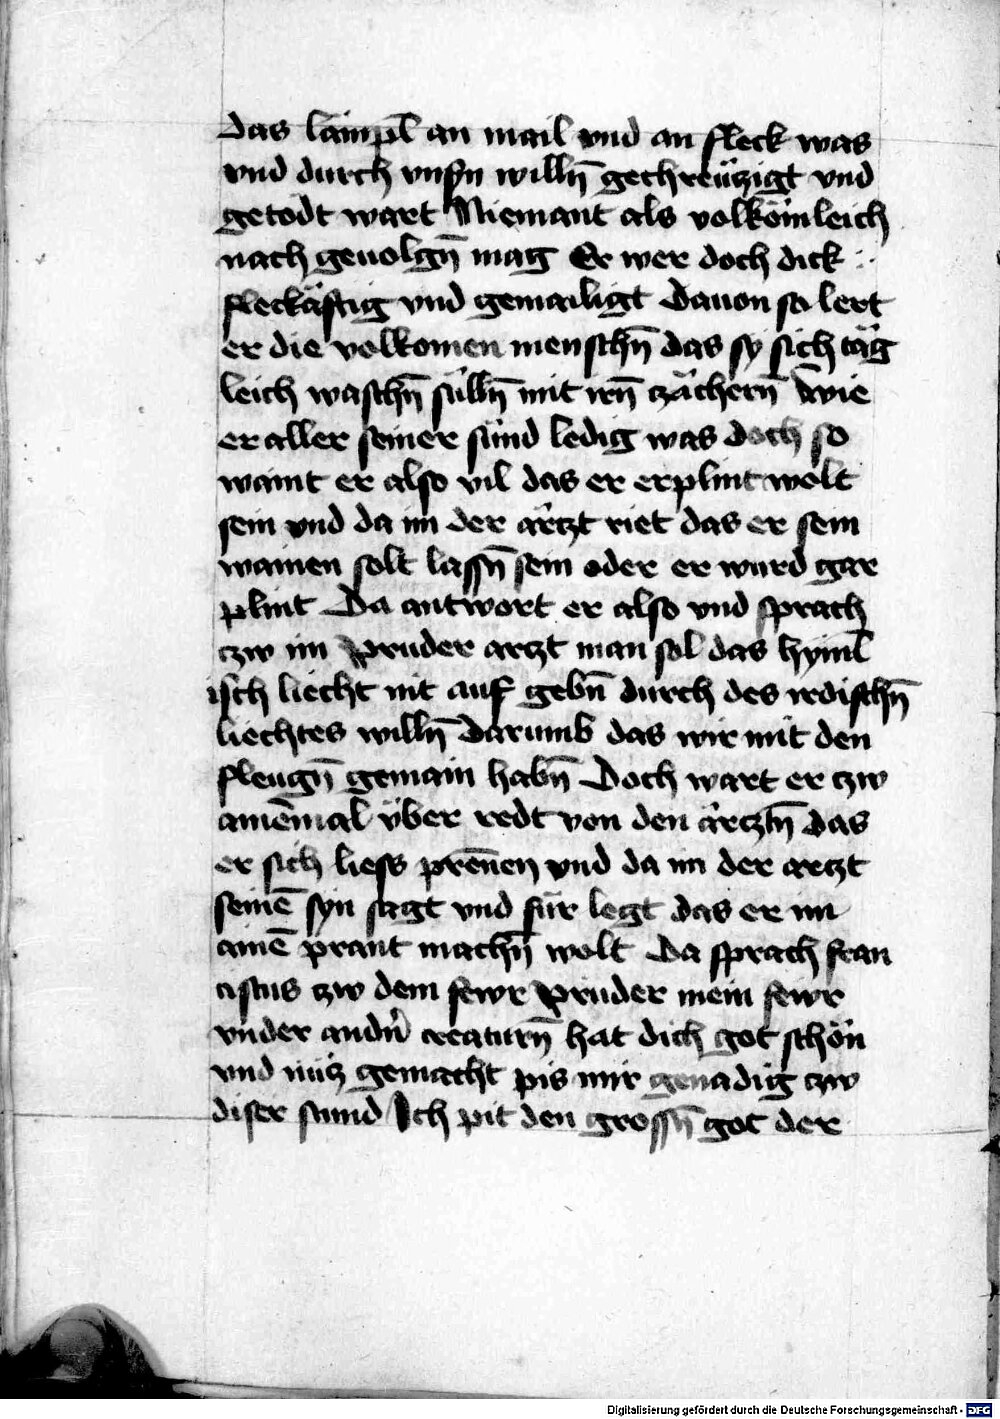 das lämpl̄ an mail vnd an fleck was
vnd durch vnsn̄ willn̄ gechreüczigt vnd
getödt wart Niemant als volkömleich
nach geuolgn̄ mag Er wer doch dick
fleckäftig vnd gemailigt Dauon so lert
er die volkomen menschn̄ das sy sich täg
leich waschn̄ süllñ mit irn̄ zächern̄ Wie
er aller seiner sünd ledig was doch so
waint er also vil das er erplint wolt
sein vnd da im der ärtzt riet das er sein
wainen solt lassn̄ sein oder er wurd gar
plint Da antwort er also vnd sprach
czw im Pruder arczt man sol das hyml̄
isch liecht nit auf gebn̄ durch des irdischn̄
liechtes willn̄ Darumb das wir mit den
fleugn̄ gemain habn̄ Doch wart er czw
ainēmal über redt von den ärcztn̄ das
er sich liess prēnen vnd da im der arczt
seinē syn sagt vnd für legt das er im
ainē prant machn̄ wolt Da sprach fran
cistus czw dem fewr Pruder mein fewr
vnder andn̄ creaturn̄ hat dich got schön
vnd nücz gemacht pis mir genadig czw
diser stund Ich pit den grossn̄ got der
Digitalisierung gefördert durch die Deutsche Forschungsgemeinschaft - DFG